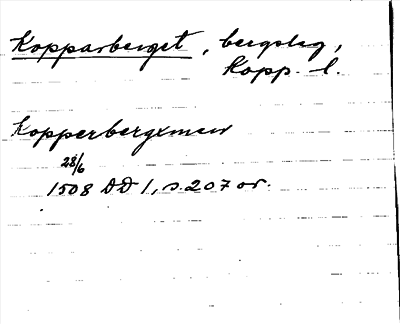 Kopparberget, bergslag,
Kopp. l.
Kopperbergxmen
28/6
1508 DD 1, s. 207 or.